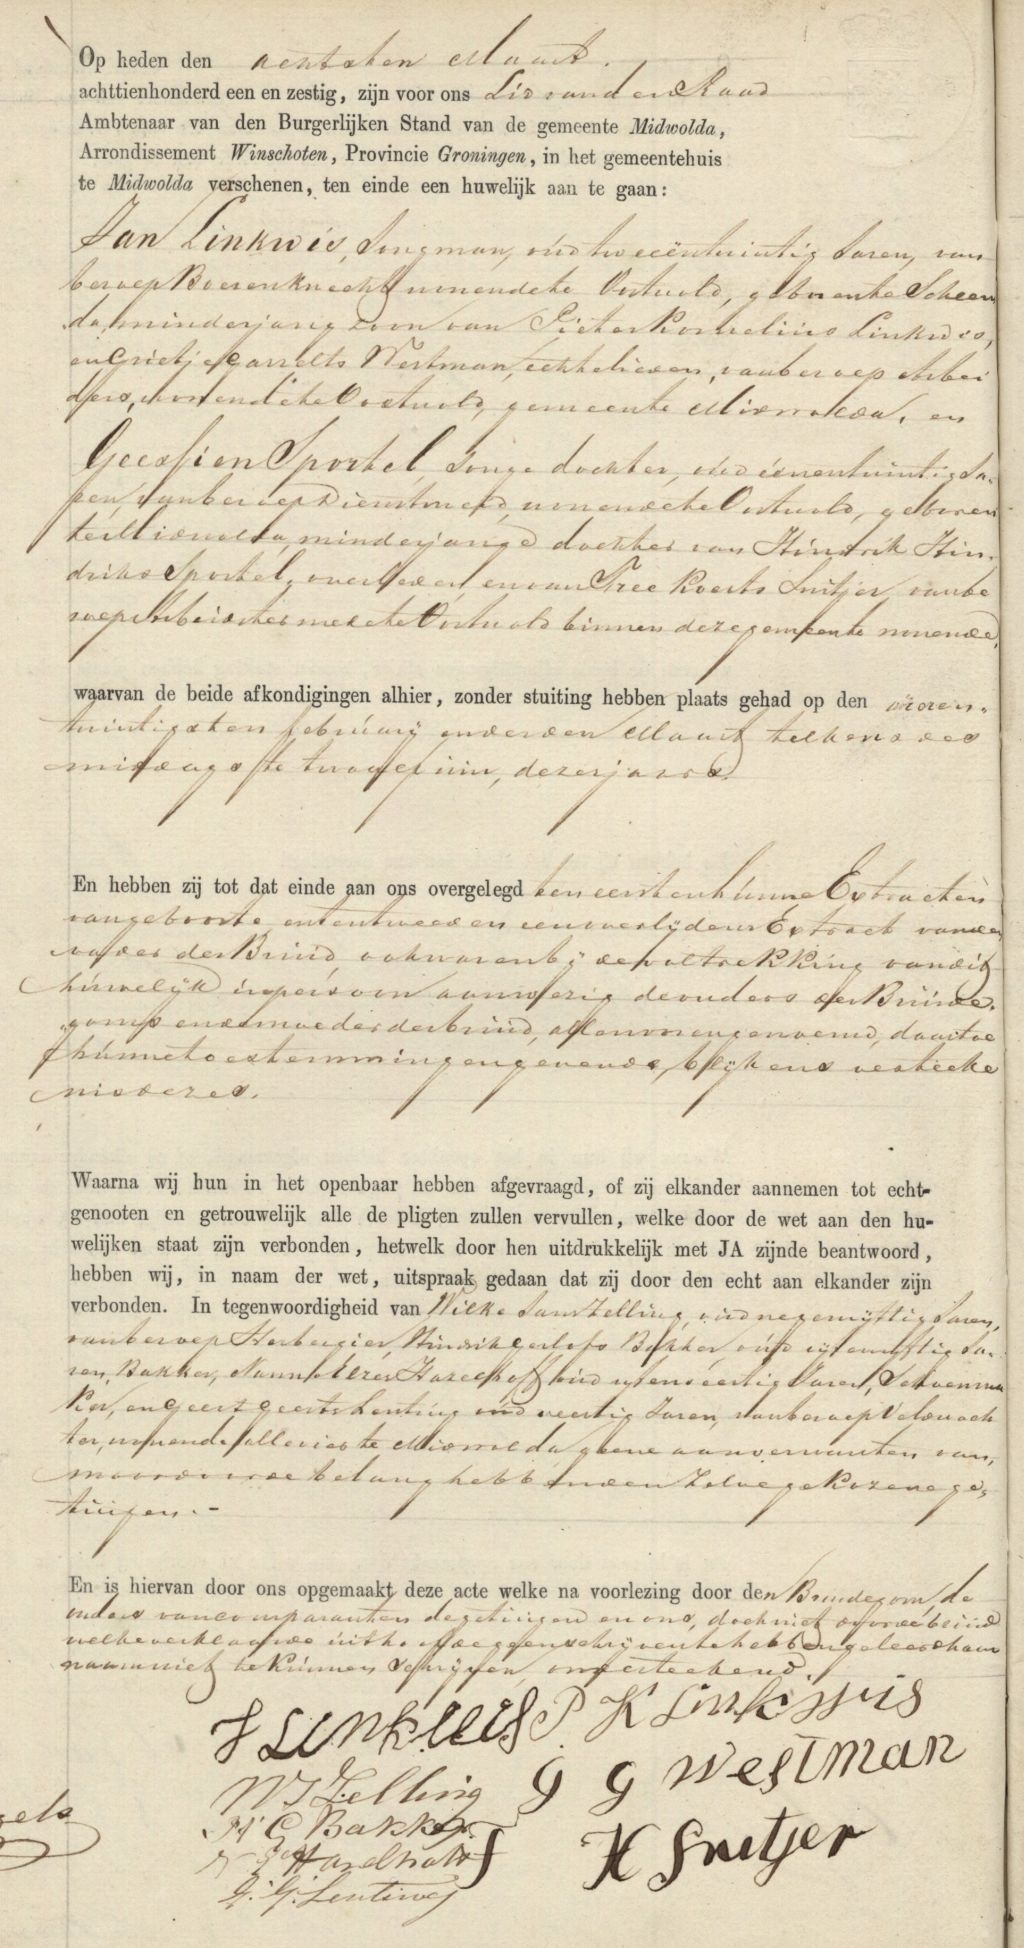 Op heden den achtsten Maart.
achttienhonderd een en zestig, zijn voor ons Lid van den Raad
Ambtenaar van den Burgerlijken Stand van de gemeente Midwolda,
Arrondissement Winschoten, Provincie Groningen, in het gemeentehuis
te Midwolda verschenen, ten einde een huwelijk aan te gaan:
Jan Linkwis, Jongman, oud tweeëntwintig Jaren, van
beroep Boerenknecht wonende te Oostwold, geboren te Scheem
da, minderjarig zoon van Pieter Kornelius Linkwis,
en Grietje Garrelts Westman, echtelieden, van beroep Arbei
ders, wonende te Oostwold, gemeente Midwolda, en
Geessien Sportel, Jonge dochter, oud eenentwintig Ja-
ren, van beroep Dienstmeid, wonende te Oostwold, geboren
te Midwolda, minderjarige dochter van Hindrik Hin-
driks Sportel, overleden, en van Tree Koerts Snitjer, van be
roep Arbeidster mede te Oostwold binnen deze gemeente wonende,
waarvan de beide afkondigingen alhier, zonder stuiting hebben plaats gehad op den vieren-
twintigsten februarij en derden Maart telkens des
middags te twaalf uur, dezer jaars.
En hebben zij tot dat einde aan ons overgelegd ten eersten hunne Extracten
van geboorte, en ten tweeden een overlijdens Extract van den
vader der Bruid, ook waren bij de voltrekking van dit
huwelijk in persoon aanwezig de ouders der Bruide-
goms en de moeder der bruid, allen voorengenoemd, daartoe
hunne toestemmingen gevende, blijkens vertecke
nis dezes.
Waarna wij hun in het openbaar hebben afgevraagd, of zij elkander aannemen tot echt-
genooten en getrouwelijk alle de pligten zullen vervullen, welke door de wet aan den hu-
welijken staat zijn verbonden, hetwelk door hen uitdrukkelijk met JA zijnde beantwoord,
hebben wij, in naam der wet, uitspraak gedaan dat zij door den echt aan elkander zijn
verbonden. In tegenwoordigheid van Wilke Jans Zelling, oud negenvijftig Jaren,
van beroep Herbergier, Hindrik Gerlofs Bakker, oud vijfenvijftig Ja-
ren, Bakker, Nanno Hazelhoff oud vijfenveertig Jaren, Schoenma
ker, en Geert Geerts Lenting oud veertig Jaren, van beroep Veldwach
ter, wonende alle vier te Midwolda, geene aanverwanten van,
maar door de belanghebbenden zelve gekozene ge-
tuigen.-
En is hiervan door ons opgemaakt deze acte welke na voorlezing door den Bruidegom, de
ouders van comparanten de getuigen en ons, doch niet door de bruid
welke verklaarde uit hoofde geen schrijven te hebben geleerd haar
naam niet te kunnen schrijven, onderteekend.
J Linkwis P K Linkwis
W J Zelling G G Westman
H G Bakker
N E Hazelhoff T K Snitjer
G. G. Lenting